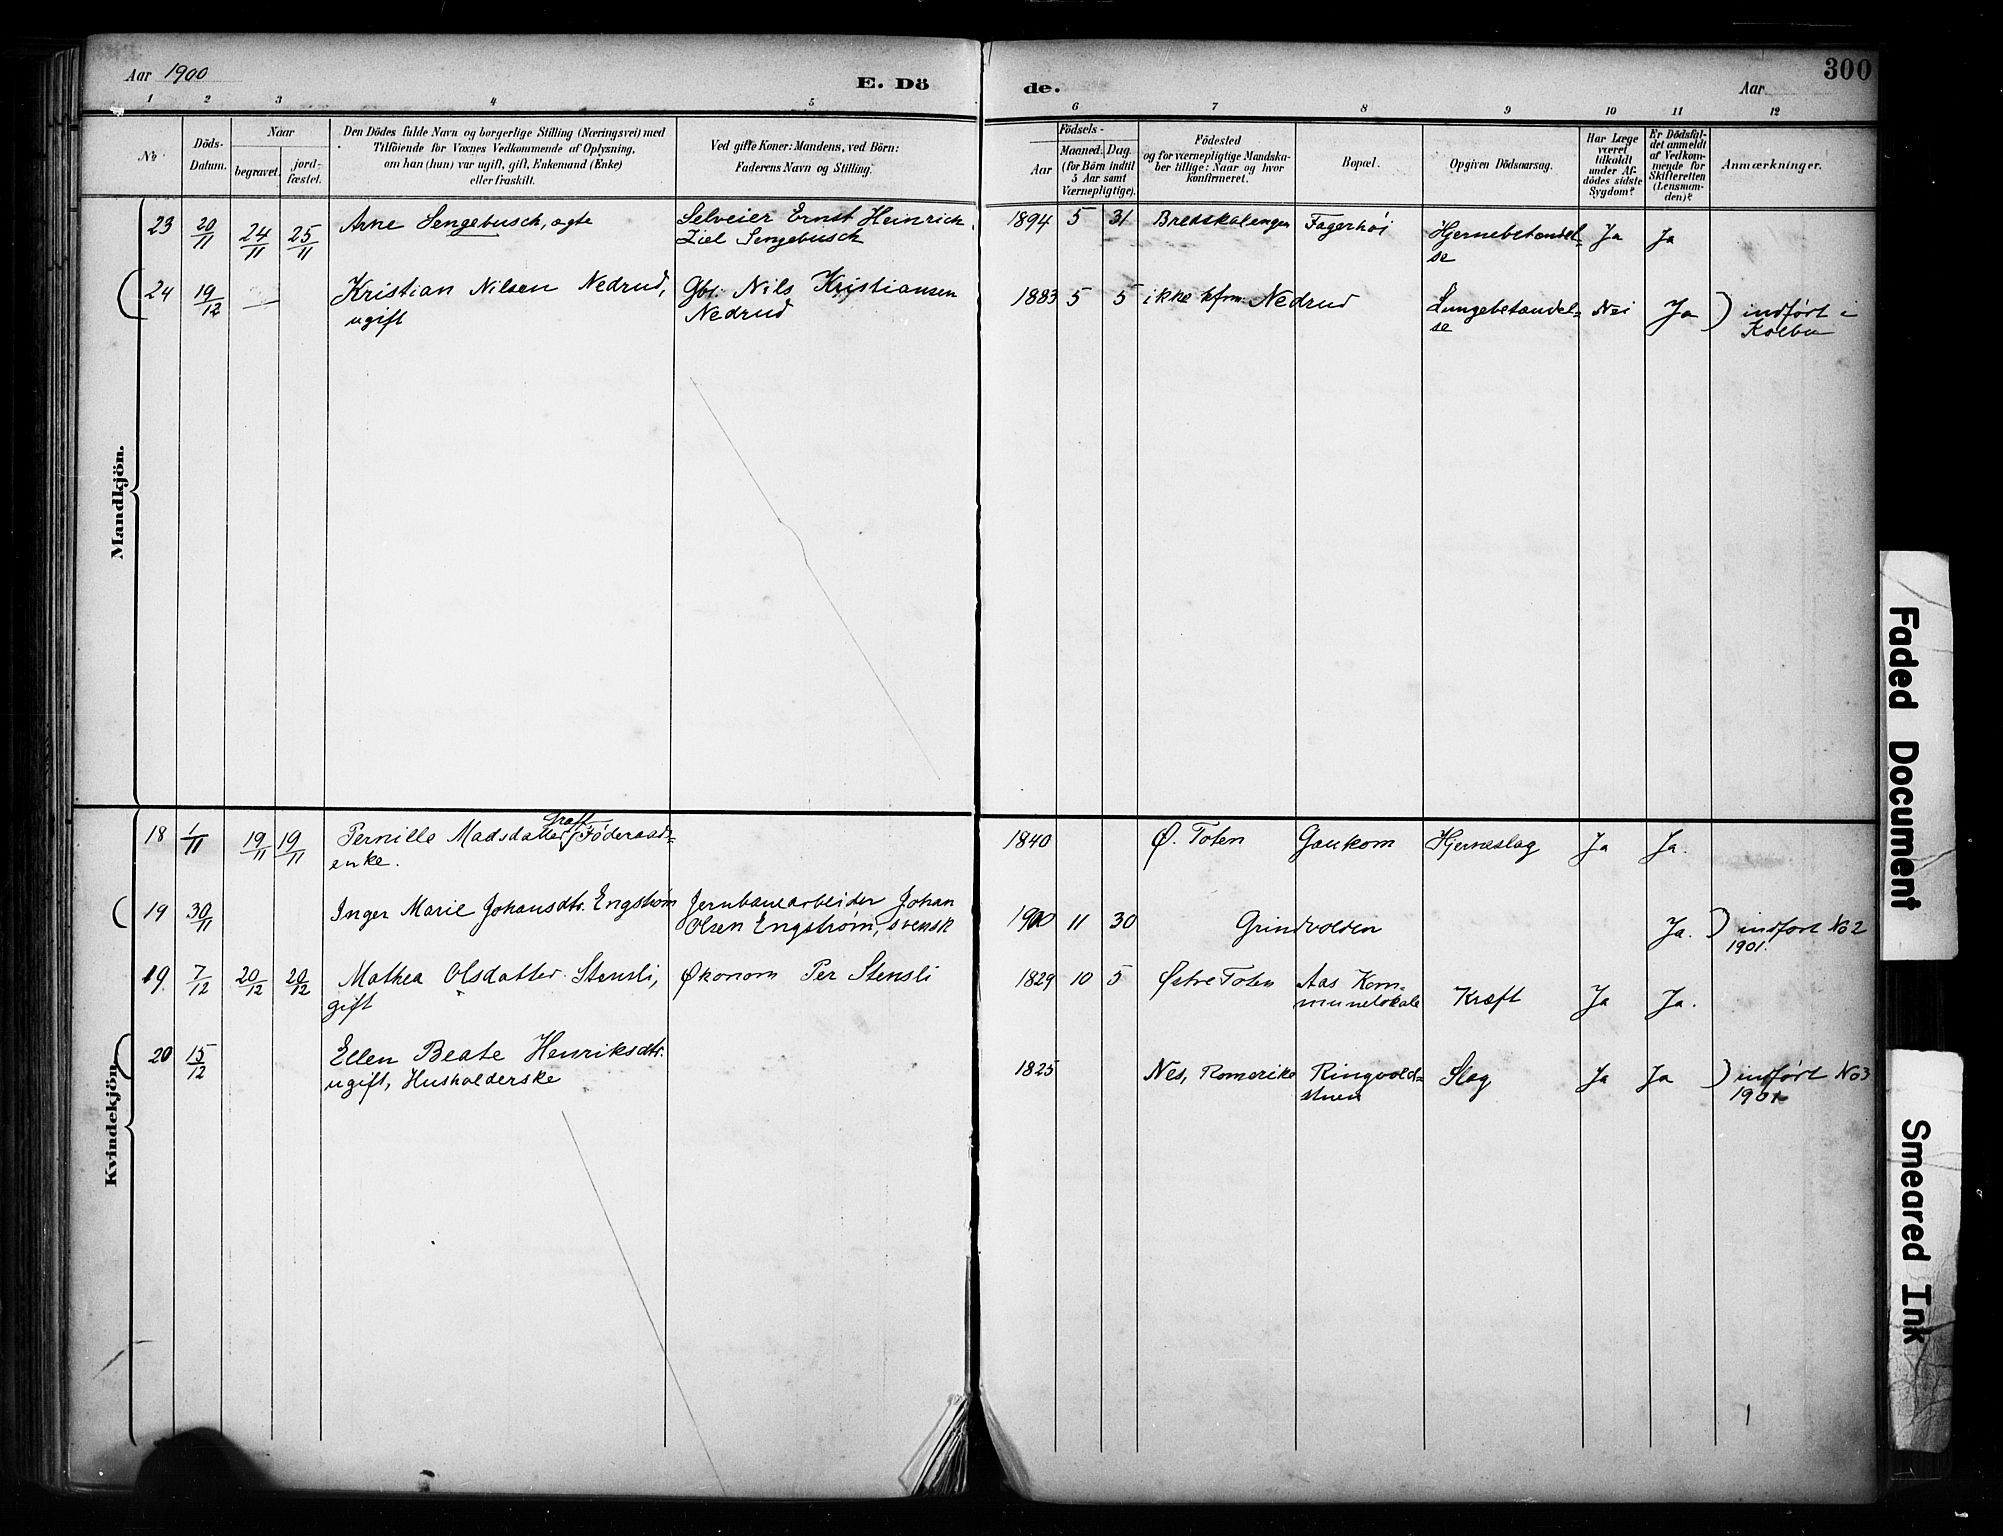 Aar 1900
E. Dö
de.
Aar
300
1 2 3 4 5 6 7 8 9 10 11 12
No
Döds-
Datum.
Naar
begravet.
jord-
fæstet.
Den Dödes fulde Navn og borgerlige Stilling (Næringsvei) med
Tilföiende for Voxnes Vedkommende af Oplysning,
om han (hun) var ugift, gift, Enkemand (Enke)
eller fraskilt.
Ved gifte Koner: Mandens, ved Börn:
Faderens Navn og Stilling.
Födsels-
Aar
Maaned. Dag.
(for Börn indtil
5 Aar samt
Værnepligtige).
Födested
og for værnepligtige Mandska-
ber tillige: Naar og hvor
konfirmeret.
Bopæl.
Opgiven Dödsaarsag.
Har Læge
været
tilkaldt
under Af-
dödes sidste
Sygdom?
Er Dödsfal-
det anmeldt
af Vedkom-
mende for
Skifteretten
(Lensman-
den)?
Anmærkninger.
Mandkjön.
23 20/11 24/11 25/11 Arne Sengebusch, ægte
Selveier Ernst Heinrich
Ziel Sengebusch
1894 5 31 Bredskalengen Fagerhøi Hjernebetændel-
se
Ja Ja
24 19/12 — Kristian Nilsen Nedrud,
ugift
Gbr. Nils Kristiansen
Nedrud
1883 5 5 ikke kfrm. Nedrud Lungebetændel-
se
Nei Ja ) indført i
Kolbu
Kvindekjön.
18 1/11 19/11 19/11 Pernille Madsdatter Føderaads-
enke.
1840 Ø. Toten Gaukom Hjerneslag Ja Ja.
19 30/11 Inger Marie Johansdtr. Engstrøm
Jernbanearbeider Johan
Olsen Engstrøm, svensk
1900 11 30 Grindvolden Ja. ) indført No 2
1901.
19. 7/12 20/12 20/12 Mathea Olsdatter Stensli,
gift
Økonom Per Stensli
1829 10 5 Østre Toten Aas Kom-
munelokale
Kræft Ja Ja.
20 15/12 Ellen Beate Henriksdtr.
ugift, Husholderske
1825 Nes, Romerike Ringvold-
stuen
Slag Ja Ja ) indført No 3
1901
Faded Document
Smeared Ink